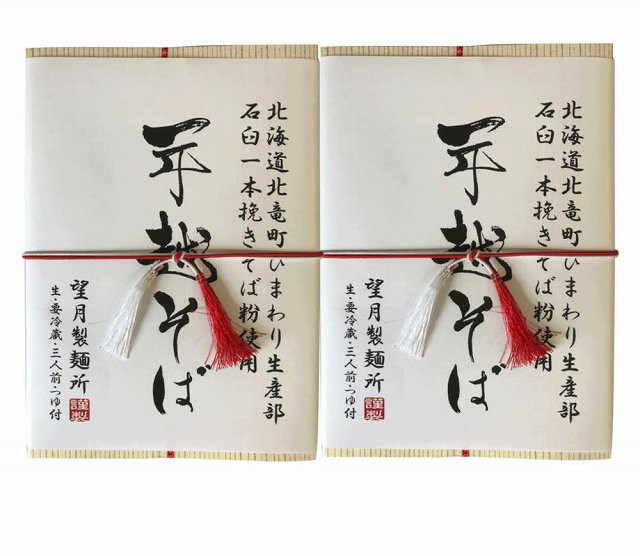 北海道北竜町ひまわり生産部
石臼一本挽きそば粉使用
年越そば
望月製麺所
謹製
生・要冷蔵・三人前・つゆ付
北海道北竜町ひまわり生産部
石臼一本挽きそば粉使用
年越そば
望月製麺所
謹製
生・要冷蔵・三人前・つゆ付